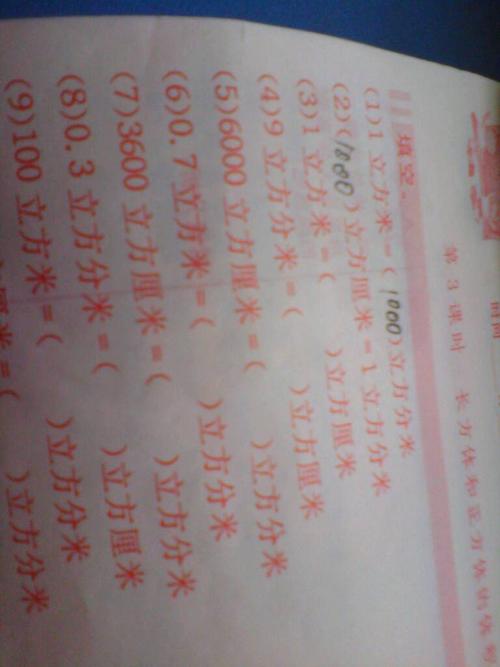 第3课时 长方体和正方体的体
填空。
(1)1 立方米=(1000)立方分米
(2)(1000)立方厘米=1 立方分米
(3)1 立方米=( )立方厘米
(4)9 立方分米=( )立方厘米
(5)6000 立方厘米=( )立方分米
(6)0.7 立方米=( )立方分米
(7)3600 立方厘米=( )立方分米
(8)0.3 立方分米=( )立方厘米
(9)100 立方米=( )立方分米
厘米=( )立方分米